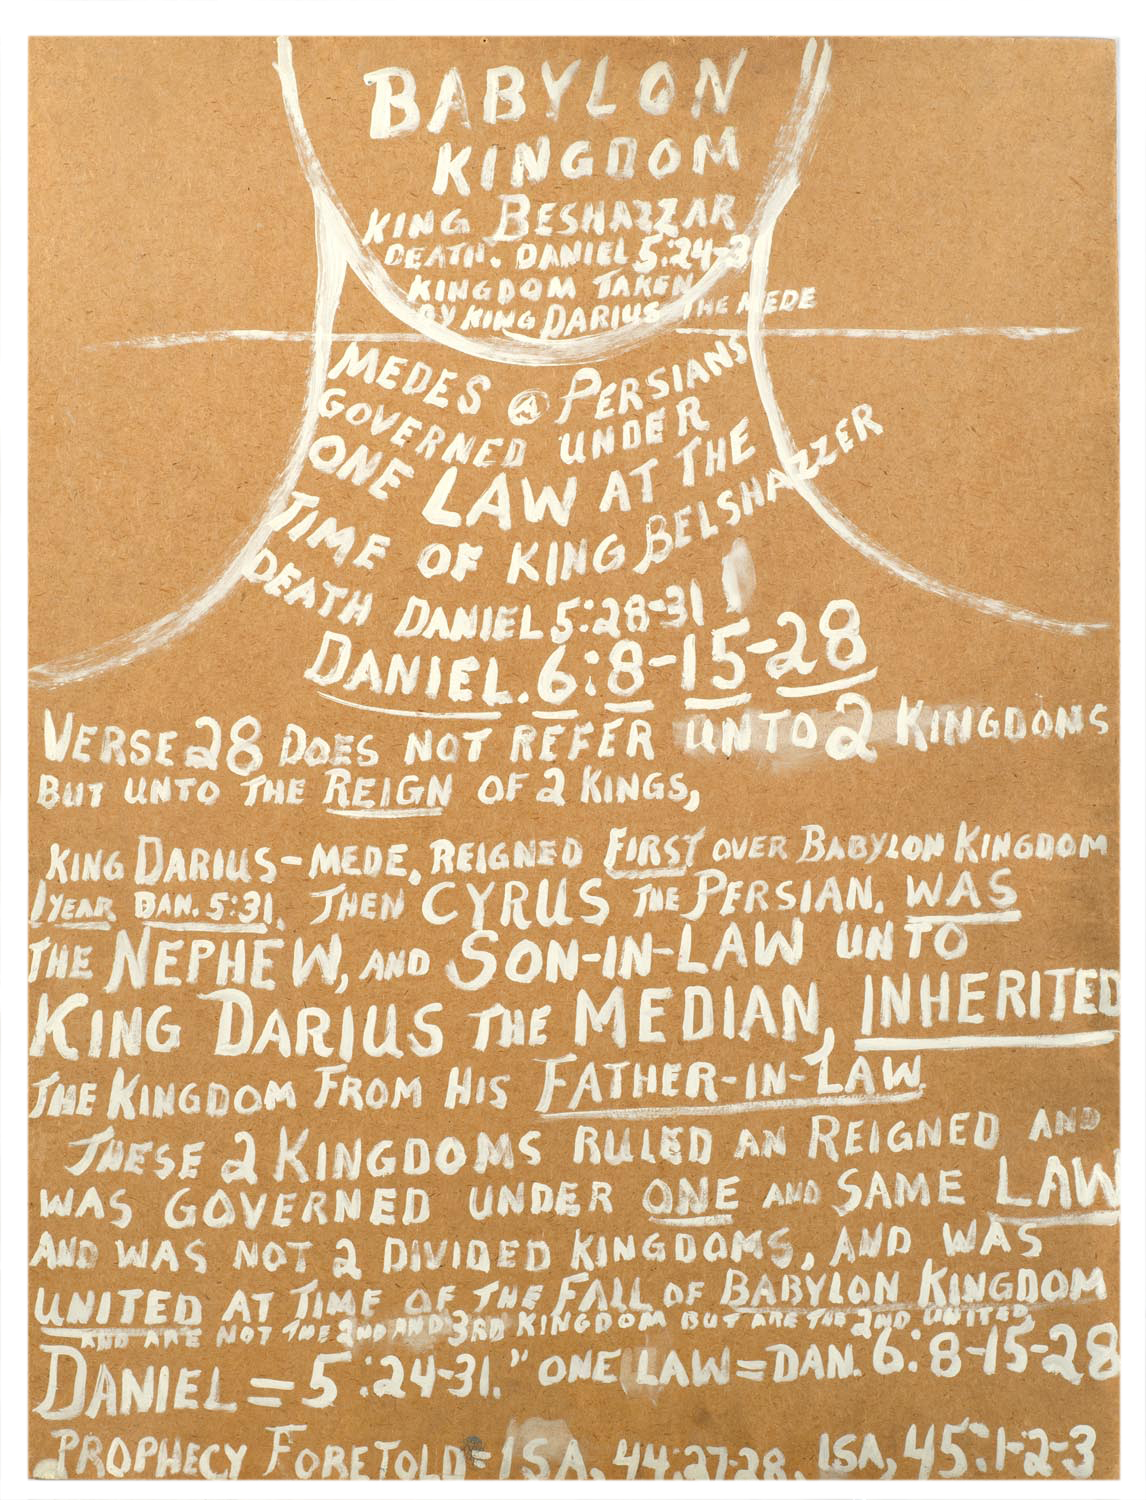 BABYLON
KINGDOM
KING BESHAZZAR
DEATH. DANIEL 5:24-3
KINGDOM TAKEN
BY KING DARIUS THE MEDE
MEDES @ PERSIANS
GOVERNED UNDER
ONE LAW AT THE
TIME OF KING BELSHAZZER
DEATH DANIEL 5:28-31
DANIEL. 6:8-15-28
VERSE 28 DOES NOT REFER UNTO 2 KINGDOMS
BUT UNTO THE REIGN OF 2 KINGS,
KING DARIUS-MEDE, REIGNED FIRST OVER BABYLON KINGDOM
1 YEAR DAN. 5:31. THEN CYRUS THE PERSIAN. WAS
THE NEPHEW, AND SON-IN-LAW UNTO
KING DARIUS THE MEDIAN, INHERITED
THE KINGDOM FROM HIS FATHER-IN-LAW.
THESE 2 KINGDOMS RULED AN REIGNED AND
WAS GOVERNED UNDER ONE AND SAME LAW
AND WAS NOT 2 DIVIDED KINGDOMS, AND WAS
UNITED AT TIME OF THE FALL OF BABYLON KINGDOM
AND ARE NOT THE 2ND AND 3RD KINGDOM BUT ARE THE 2ND UNITED
DANIEL = 5:24-31." ONE LAW = DAN. 6:8-15-28
PROPHECY FORETOLD - ISA, 44:27-28. ISA, 45:1-2-3